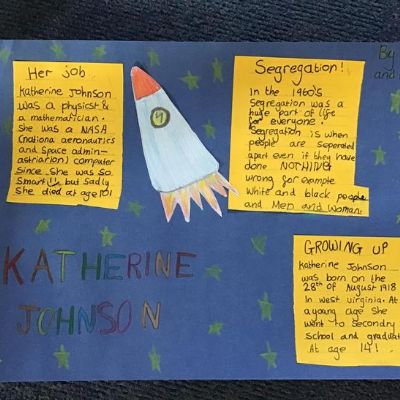 By
and
Her job
Katherine Johnson
was a physicst &
a mathematician.
She was a NASA
(nationa aeronautics
and space admin-
astriarion) computer
since she was so
smart!!, but sadly
she died at age 101
Segregation!
In the 1960's
segregation was a
huge part of life
for everyone.
Segregation is when
people are seperated
apart even if they have
done NOTHING
wrong for example
White and black people
and Men and Woman.
KATHERINE
JOHNSON
GROWING UP
Katherine Johnson
was born on the
28th of August 1918
In west virginia. At
a young age She
went to Secondry
School and graduat
At age 14!